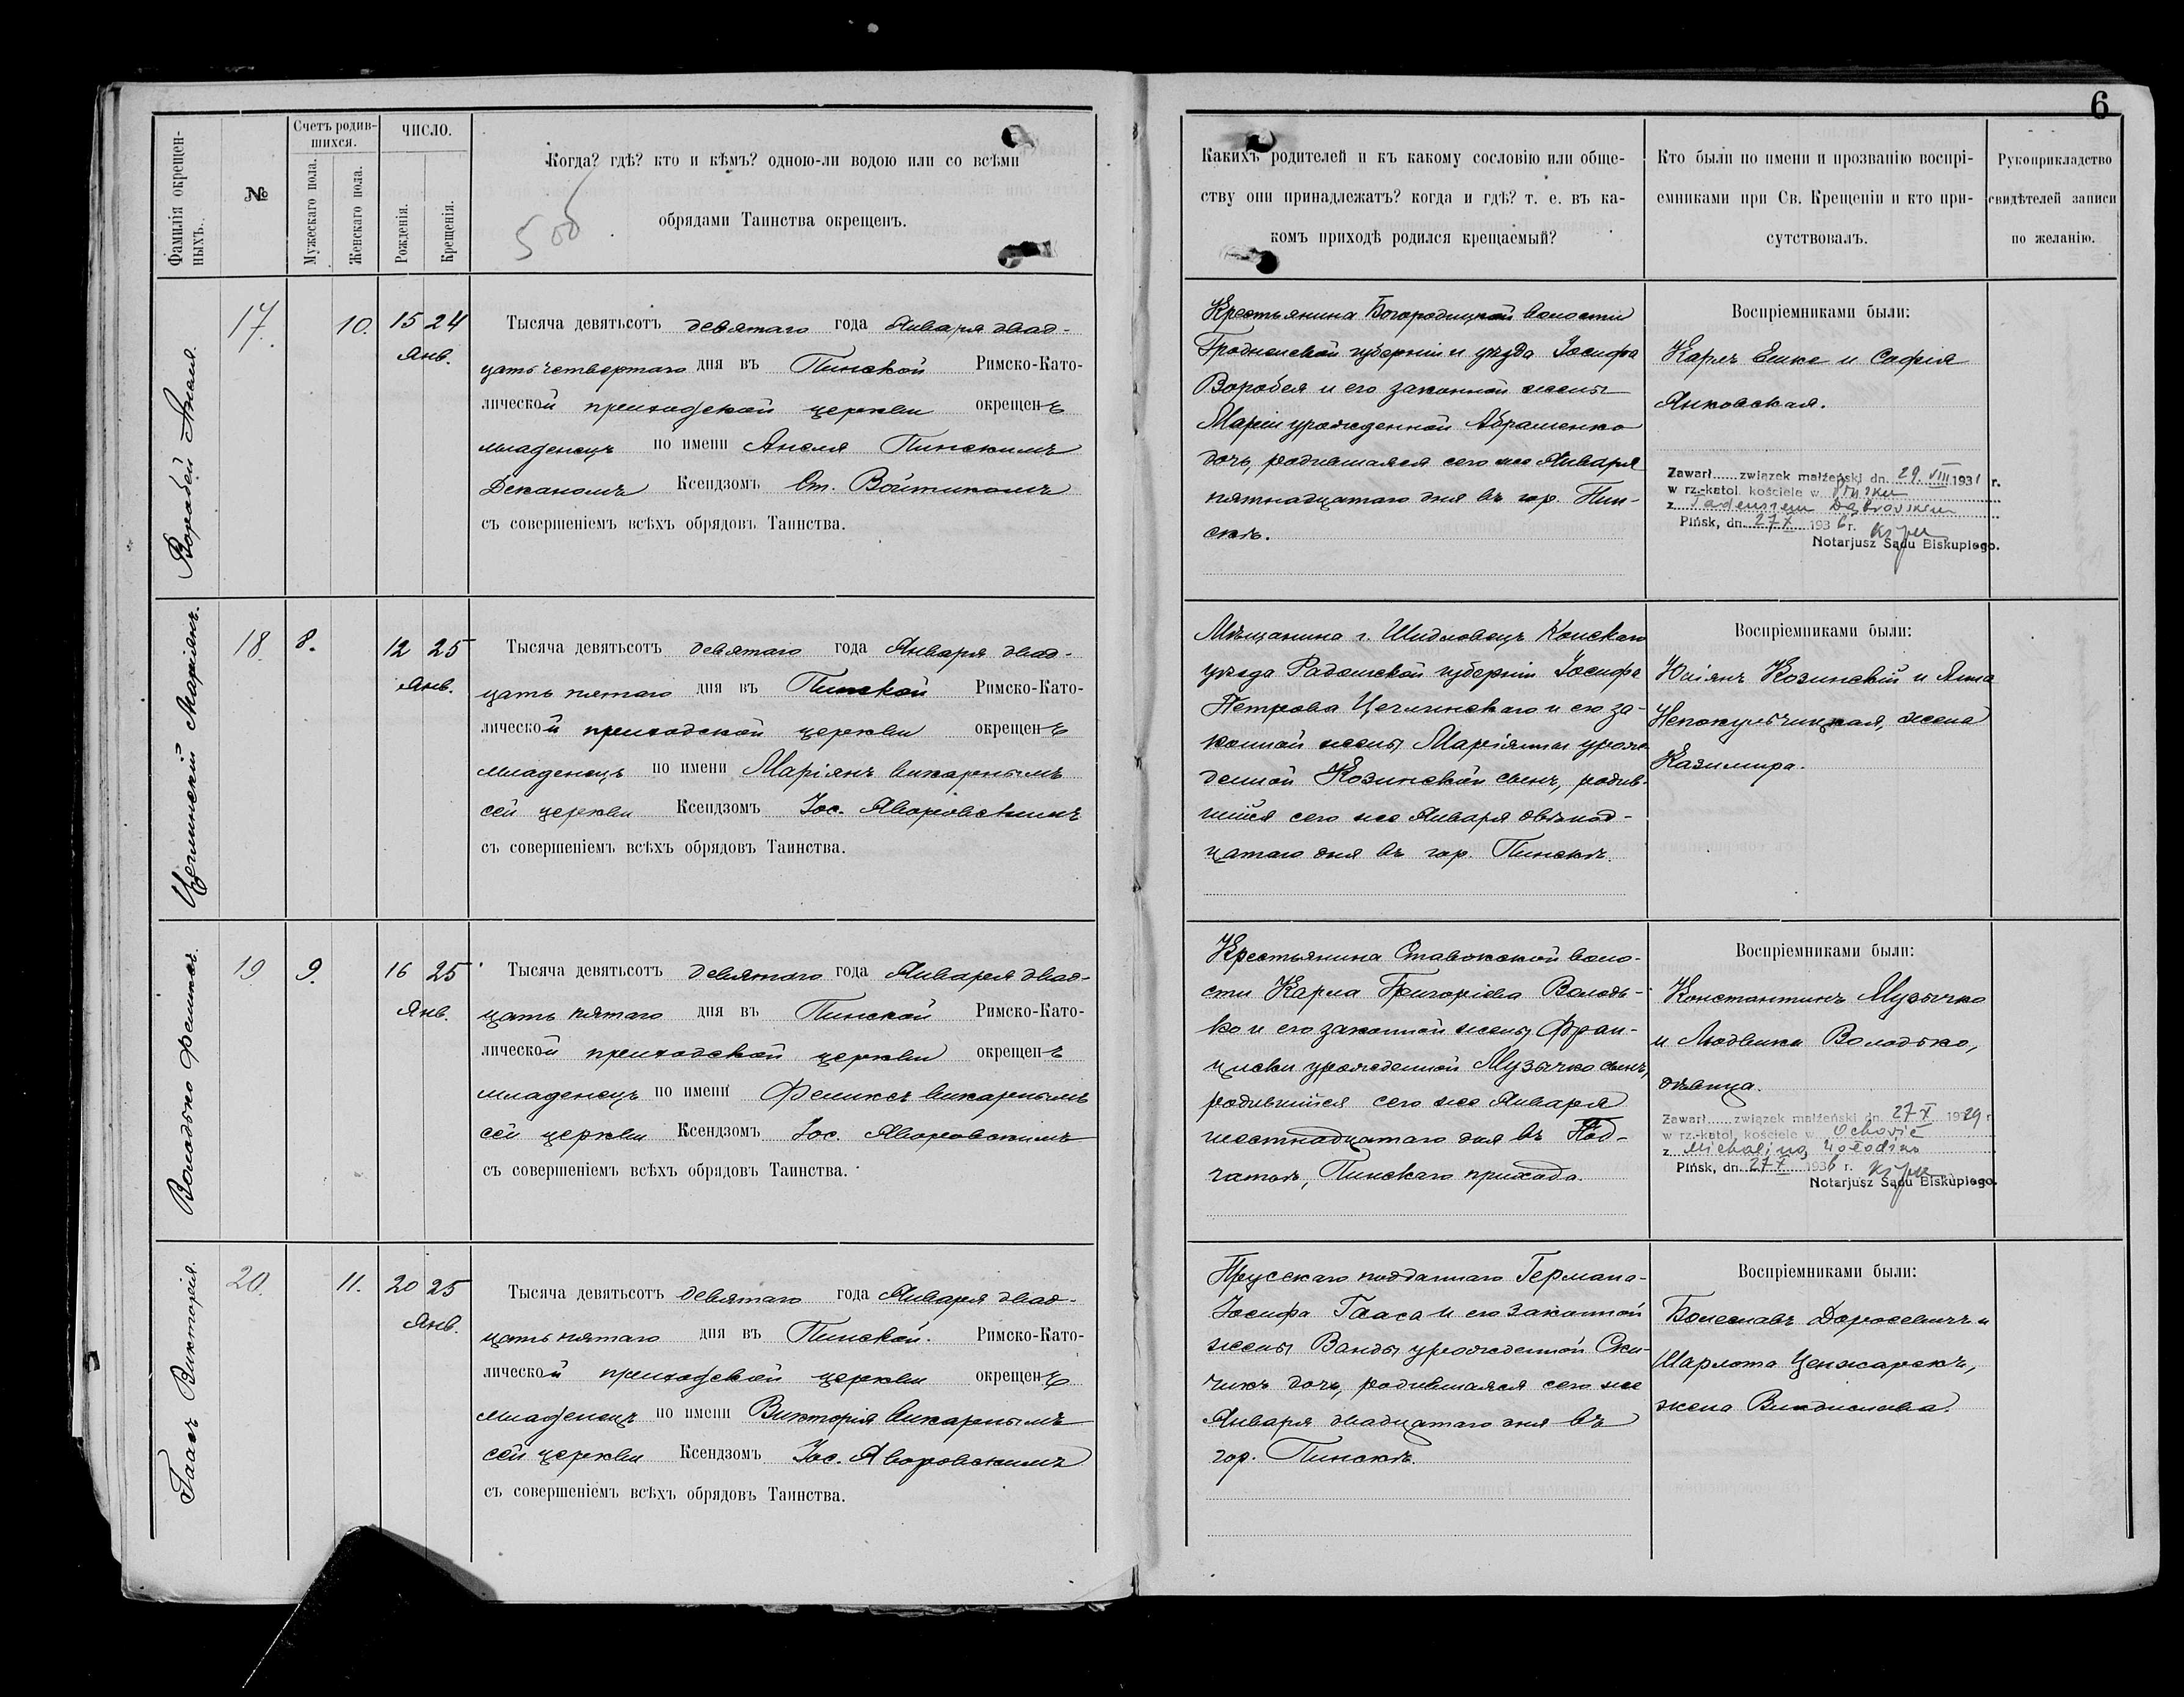 6
Фамилія окрещен-
ныхъ.
№
Счетъ родив-
шихся.
Мужескаго пола.
Женскаго пола.
ЧИСЛО.
Рожденія.
Крещенія.
Когда? гдѣ? кто и кѣмъ? одною-ли водою или со всѣми
обрядами Таинства окрещенъ.
500
Какихъ родителей и къ какому сословію или обще-
ству они принадлежатъ? когда и гдѣ? т. е. въ ка-
комъ приходѣ родился крещаемый?
Кто были по имени и прозванію воспрі-
емниками при Св. Крещеніи и кто при-
сутствовалъ.
Рукоприкладство
свидѣтелей записи
по желанію.
Воробей Анеля.
17.
10.
15 24
Янв.
Тысяча девятьсотъ девятаго года Января двад-
цать четвертаго дня въ Пинской Римско-Като-
лической приходской церкви окрещенъ
младенецъ по имени Анеля Пинскимъ
Деканомъ Ксендзомъ Ст. Войтикомъ
съ совершеніемъ всѣхъ обрядовъ Таинства.
Крестьянина Богородицкой волости
Гродненской губерніи и уѣзда Іосифа
Воробея и его законной жены
Маріи урожденной Абрашенко
дочь, родившаяся сего же Января
пятнадцатаго дня въ гор. Пин-
скѣ.
Воспріемниками были:
Карлъ Ешке и Софія
Янковская.
Zawarł......związek małżeński dn. 29. VIII 1931 r.
w rz.-katol. kościele w Pińsku
z Tadeuszem Dąbrowskim
Pińsk, dn. 27 X 1936 r.
Notarjusz Sądu Biskupiego.
Цеглинскій Маріянъ.
18.
8.
12 25
Янв.
Тысяча девятьсотъ девятаго года Января двад-
цать пятаго дня въ Пинской Римско-Като-
лической приходской церкви окрещенъ
младенецъ по имени Маріянъ викарнымъ
сей церкви Ксендзомъ Іос. Яворовскимъ
съ совершеніемъ всѣхъ обрядовъ Таинства.
Мѣщанина г. Шидловецъ Конскаго
уѣзда Радомской губерніи Іосифа
Петрова Цеглинскаго и его за-
конной жены Маріянны урож-
денной Козинской сынъ, родив-
шійся сего же Января двѣнад-
цатаго дня въ гор. Пинскѣ.
Воспріемниками были:
Юліянъ Козинскій и Анна
Непокульчицкая, жена
Казимира.
Володько Феликсъ.
19
9.
16 25
Янв.
Тысяча девятьсотъ девятаго года Января двад-
цать пятаго дня въ Пинской Римско-Като-
лической приходской церкви окрещенъ
младенецъ по имени Феликсъ викарнымъ
сей церкви Ксендзомъ Іос. Яворовскимъ
съ совершеніемъ всѣхъ обрядовъ Таинства.
Крестьянина Ставокской воло-
сти Карла Григоріева Володь-
ко и его законной жены Фран-
циски урожденной Музычко сынъ,
родившійся сего же Января
шестнадцатаго дня въ
Пинскаго прихода.
Воспріемниками были:
Константинъ Музычко
и Людвика Володько,
дѣвица.
Zawarł......związek małżeński dn. 27 X 1929 r.
w rz.-katol. kościele w Ochowie
z Michaliną Wołodźko
Pińsk, dn. 27 X 1936 r.
Notarjusz Sądu Biskupiego.
Гаасъ Викторія.
20.
11.
20 25
Янв.
Тысяча девятьсотъ девятаго года Января двад-
цать пятаго дня въ Пинской Римско-Като-
лической приходской церкви окрещенъ
младенецъ по имени Викторія викарнымъ
сей церкви Ксендзомъ Іос. Яворовскимъ
съ совершеніемъ всѣхъ обрядовъ Таинства.
Прусскаго подданнаго Германа-
Іосифа Гааса и его законной
жены Ванды урожденной Ски-
чикъ дочь, родившаяся сего же
Января двадцатаго дня въ
гор. Пинскѣ.
Воспріемниками были:
Болеславъ Доросевичъ и
Шарлота Ценжарекъ,
жена Владислава.